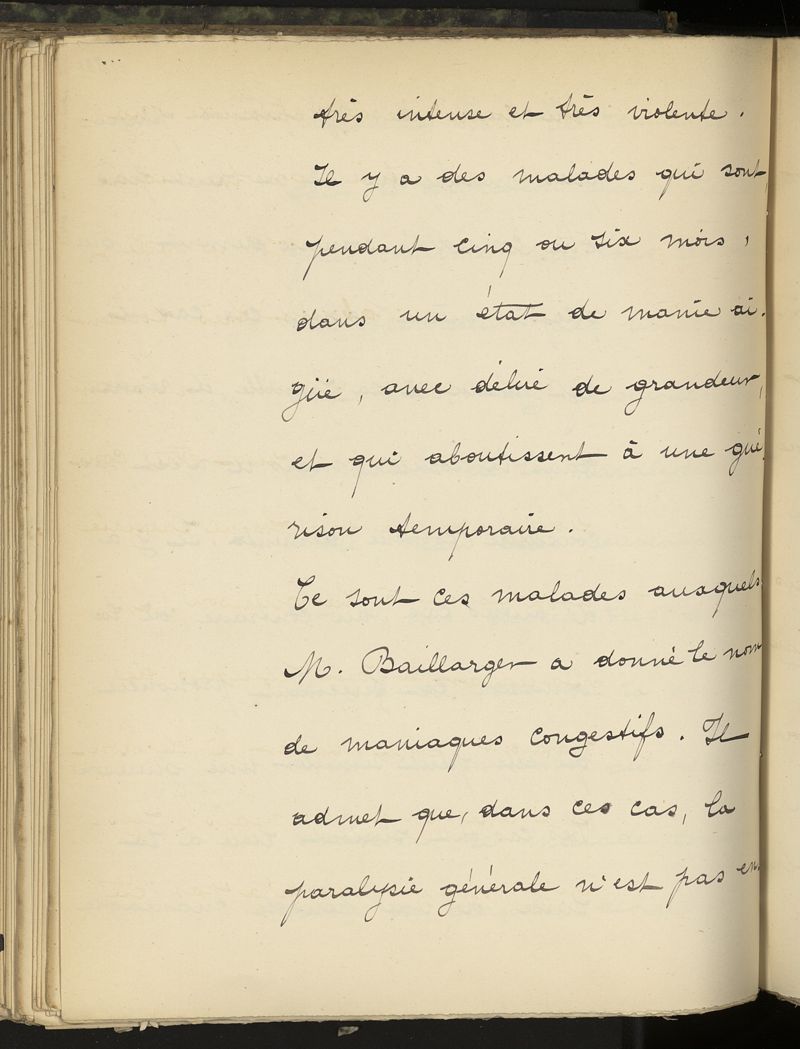 très intense et très violente.
Il y a des malades qui sont
pendant cinq ou six mois,
dans un état de manie ai-
güe, avec délire de grandeur,
et qui aboutissent à une gué-
rison temporaire.
Ce sont ces malades auxquels
M. Baillarger a donné le nom
de maniaques congestifs. Il
admet que, dans ces cas, la
paralysie générale n'est pas en-